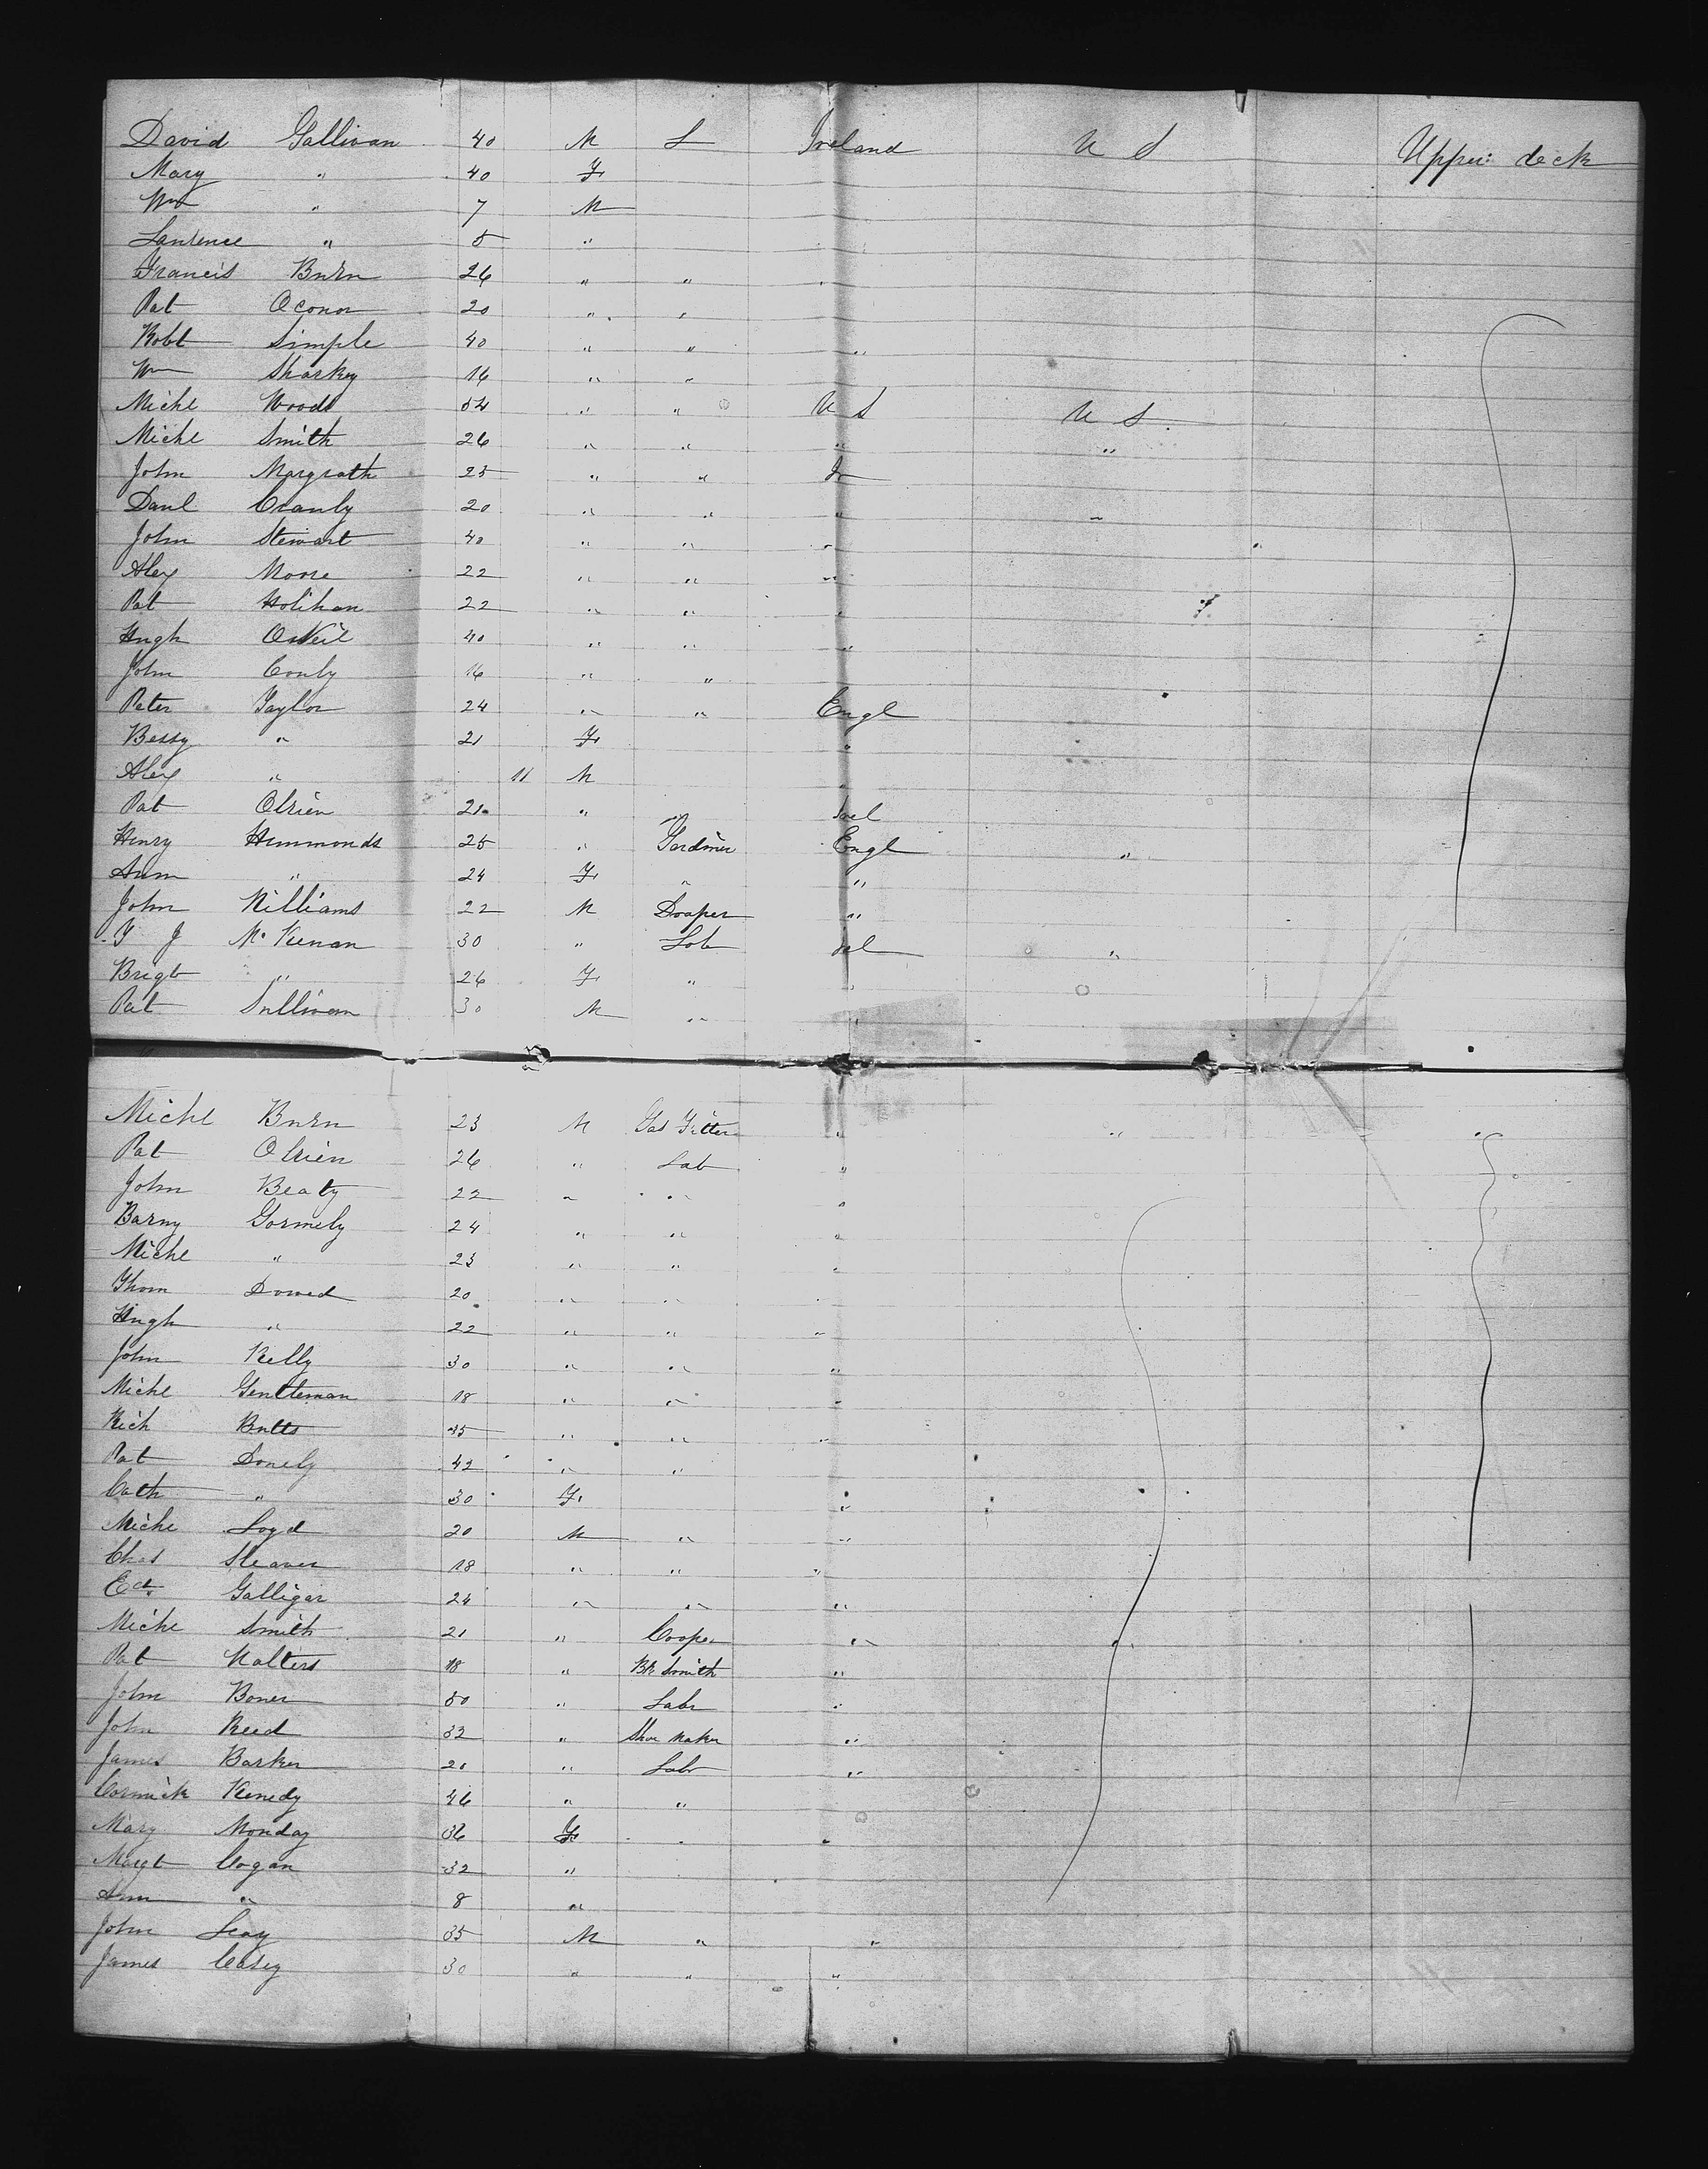 David Gallivan 40 M L Ireland U S Upper deck
Mary " 40 F
Wm " 7 M
Laurence " 5 "
Francis Burn 26 " " "
Pat Oconor 20 " "
Robt Simple 40 " " "
Wm Sharkey 16 " "
Michl Woods 54 " " U S U S
Michl Smith 26 " " " "
John Margrath 25 " " Ir
Danl Cranly 20 " " " "
John Stewart 40 " " "
Alex Moore 22 " " "
Pat Holihan 22 " " "
Hugh ONeil 40 " " "
John Conly 16 " "
Peter Taylor 24 " " Engl
Bessy " 21 F "
Alex " 11 M "
Pat Obrien 21 " Irel
Henry Hemmonds 25 " Gardiner Engl "
Ann " 24 F " "
John Williams 22 M Draper "
McKeenan 30 " Lab Irel "
Brigt " 26 F " "
Pat Sullivan 30 M " "
Michl Burn 23 M Gas Fitter " " "
Pat Obrien 26 " Lab "
John Beaty 22 " " "
Barny Gormely 24 " " "
Michl " 23 " " "
Thom Dowed 20 " "
Hugh " 22 " " "
John Kelly 30 " " "
Michl Gentleman 18 " " "
Rich Butts 45 " " "
Pat Donely 42 " "
Cath " 30 F "
Michl Loyd 20 M " "
Chas Sleaver 18 " " "
Ed. Galligar 24 " " "
Michl Smith 21 " Cooper " "
Pat Walters 18 " Bk Smith "
John Boner 50 " Labr "
John Reed 32 " Shoe maker "
James Barker 20 " Labr "
Cormick Kenedy 46 " "
Mary Monday 36 F "
Margt Cogan 32 "
Ann " 8 "
John Leay 35 M " "
James Casey 30 " " "